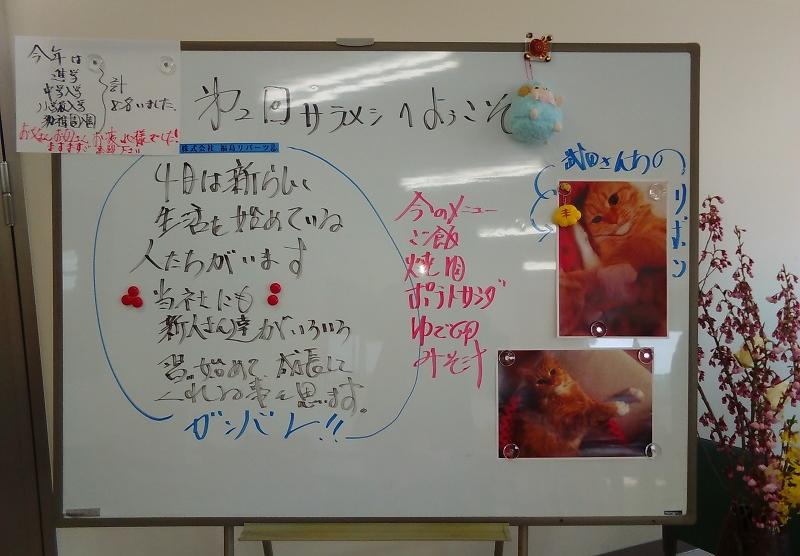 今年は
進学
中学入学
小学校入学
幼稚園入園
計
8名いました。
お父さんお母さん
お疲れ様でした!
ますます
第2回 サラメシへようこそ
株式会社 福島リパーツ
4月は新らしく
生活を始めている
人たちがいます
当社にも
新人さん達がいろいろ
習い始めて、成長して
くれる事を思います。
ガンバレ!!
今のメニュー
ご飯
焼肉
ポテトサラダ
ゆで卵
みそ汁
武田さんちの
リボン